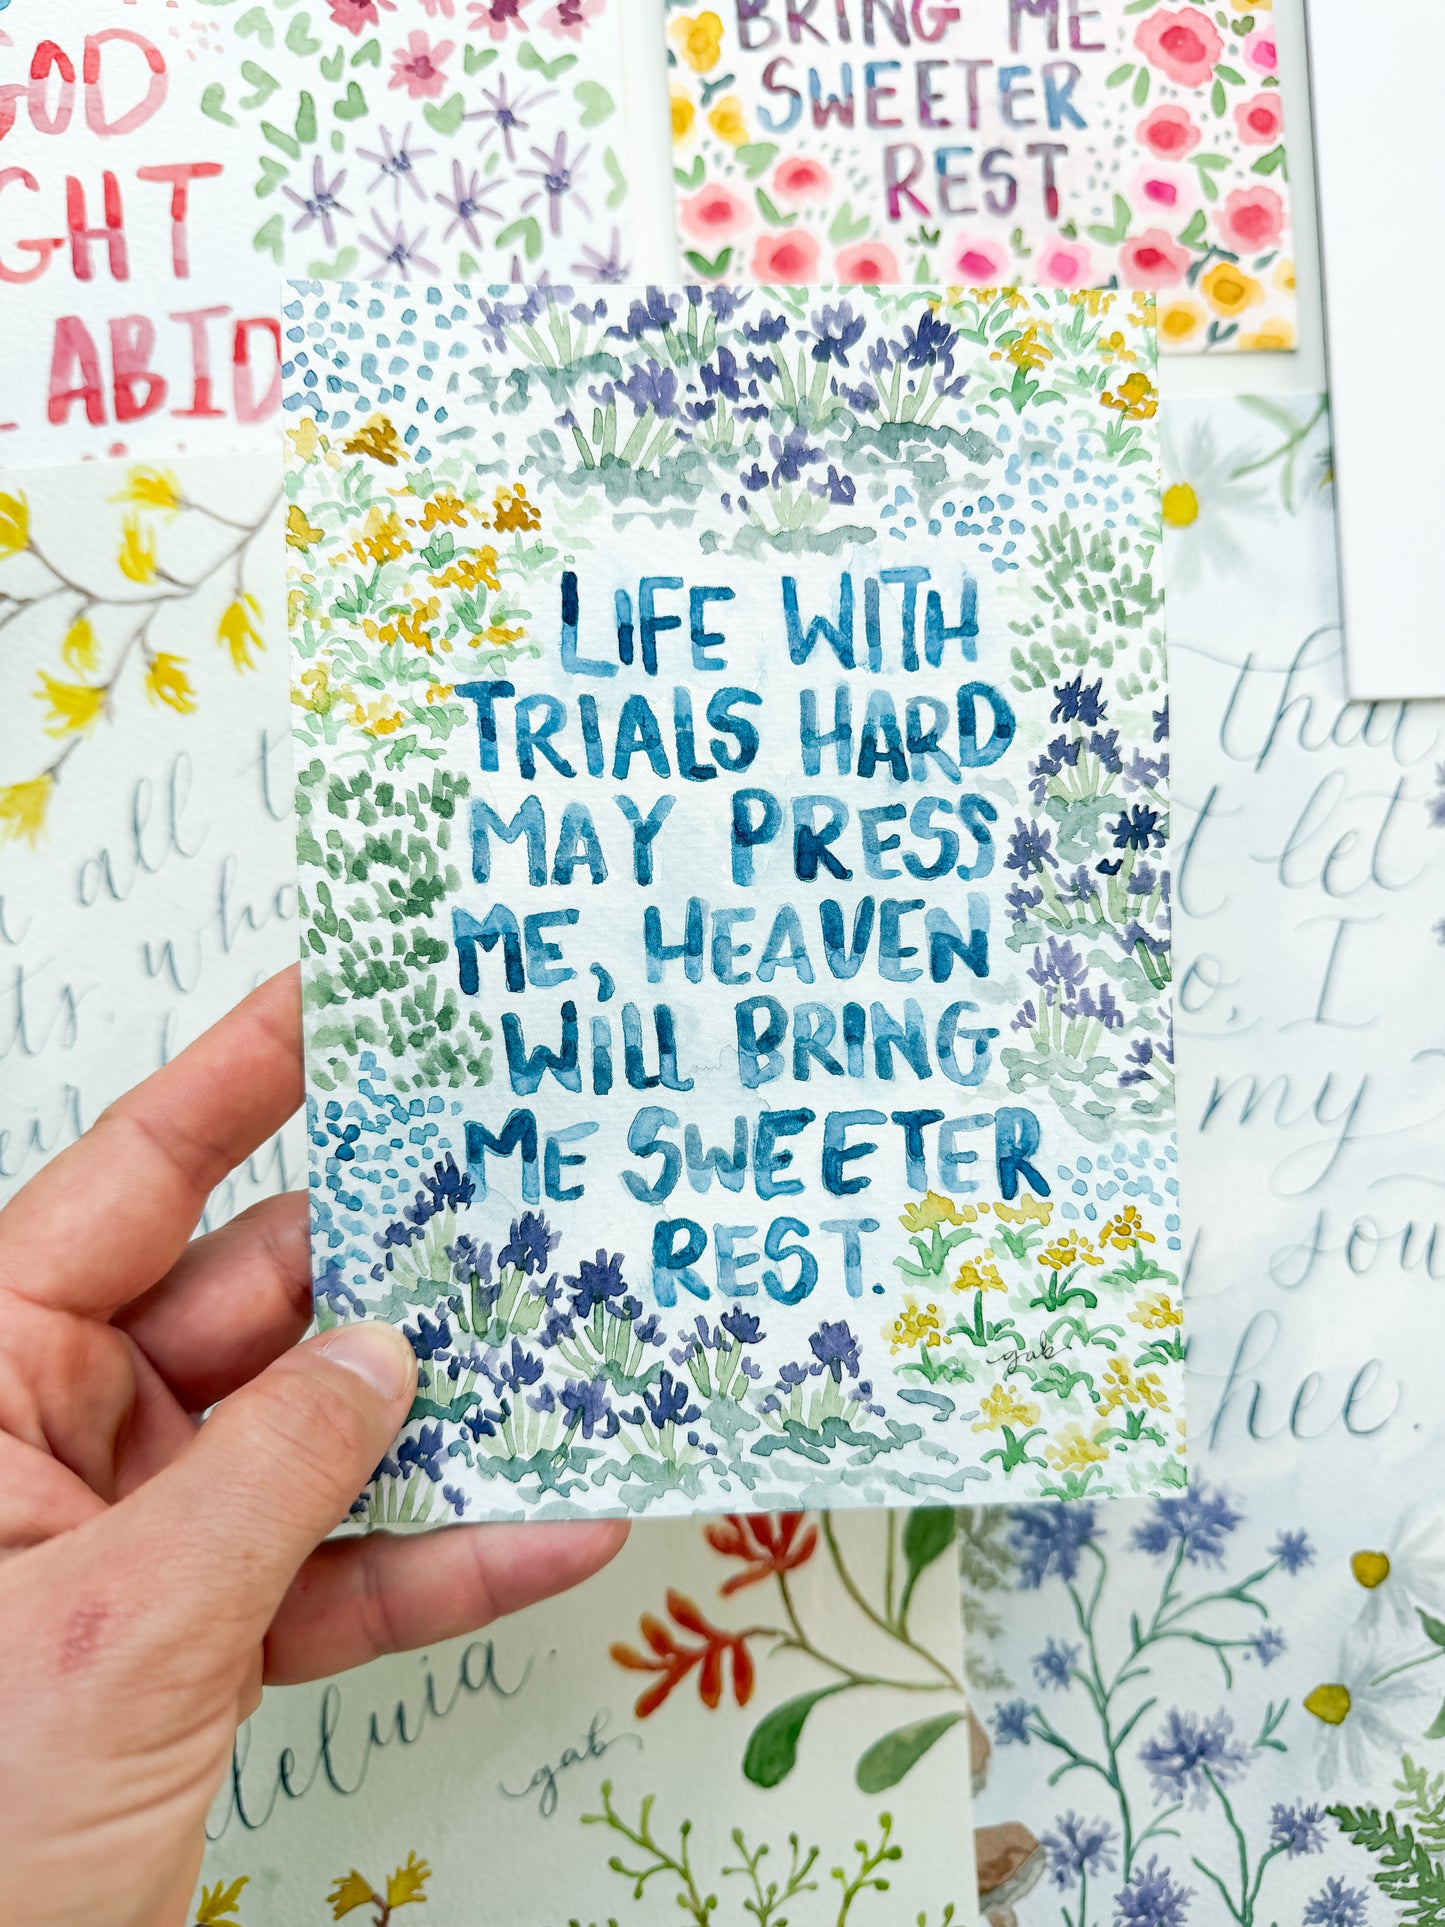 GOD
GHT
ABID
BRING ME
SWEETER
REST
LIFE WITH
TRIALS HARD
MAY PRESS
ME, HEAVEN
WILL BRING
ME SWEETER
REST.
gab
all
that
let
I
my
sou
hee.
leluia.
gab